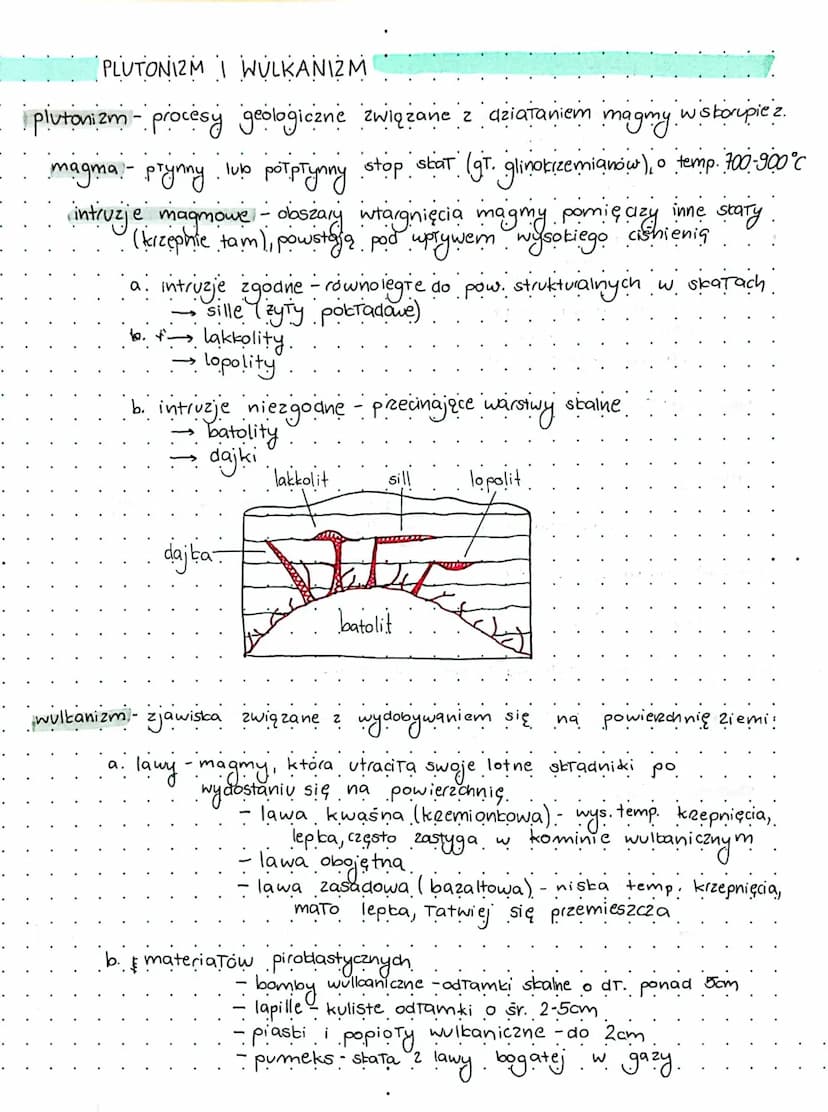 PLUTONIZM I WULKANIZM
plutonizm - procesy geologiczne związane z działaniem magmy w skorupie z.
magma - płynny lub półpłynny stop skał (gł. glinokrzemianów), o temp. 700-900°C
intruzje magmowe - obszary wtargnięcia magmy pomiędzy inne skały
(krzepnie tam), powstają pod wpływem wysokiego ciśnienia
a. intruzje zgodne - równoległe do pow. strukturalnych w skałach
→ sille (żyły pokładowe)
→ lakkolity
→ lopolity
b. intruzje niezgodne - przecinające warstwy skalne
→ batolity
→ dajki
lakkolit sill lopolit
dajka
batolit
wulkanizm - zjawiska związane z wydobywaniem się na powierzchnię ziemi:
a. lawy - magmy, która utraciła swoje lotne składniki po
wydostaniu się na powierzchnię
- lawa kwaśna (krzemionkowa) - wys. temp. krzepnięcia,
lepka, często zastyga w kominie wulkanicznym
- lawa obojętna
- lawa zasadowa (bazaltowa) - niska temp. krzepnięcia,
mało lepka, łatwiej się przemieszcza
b. materiałów piroklastycznych
- bomby wulkaniczne - odłamki skalne o dł. ponad 5cm
- lapille - kuliste odłamki o śr. 2-5cm
- piaski i popioły wulkaniczne - do 2cm
- pumeks - skała z lawy bogatej w gazy